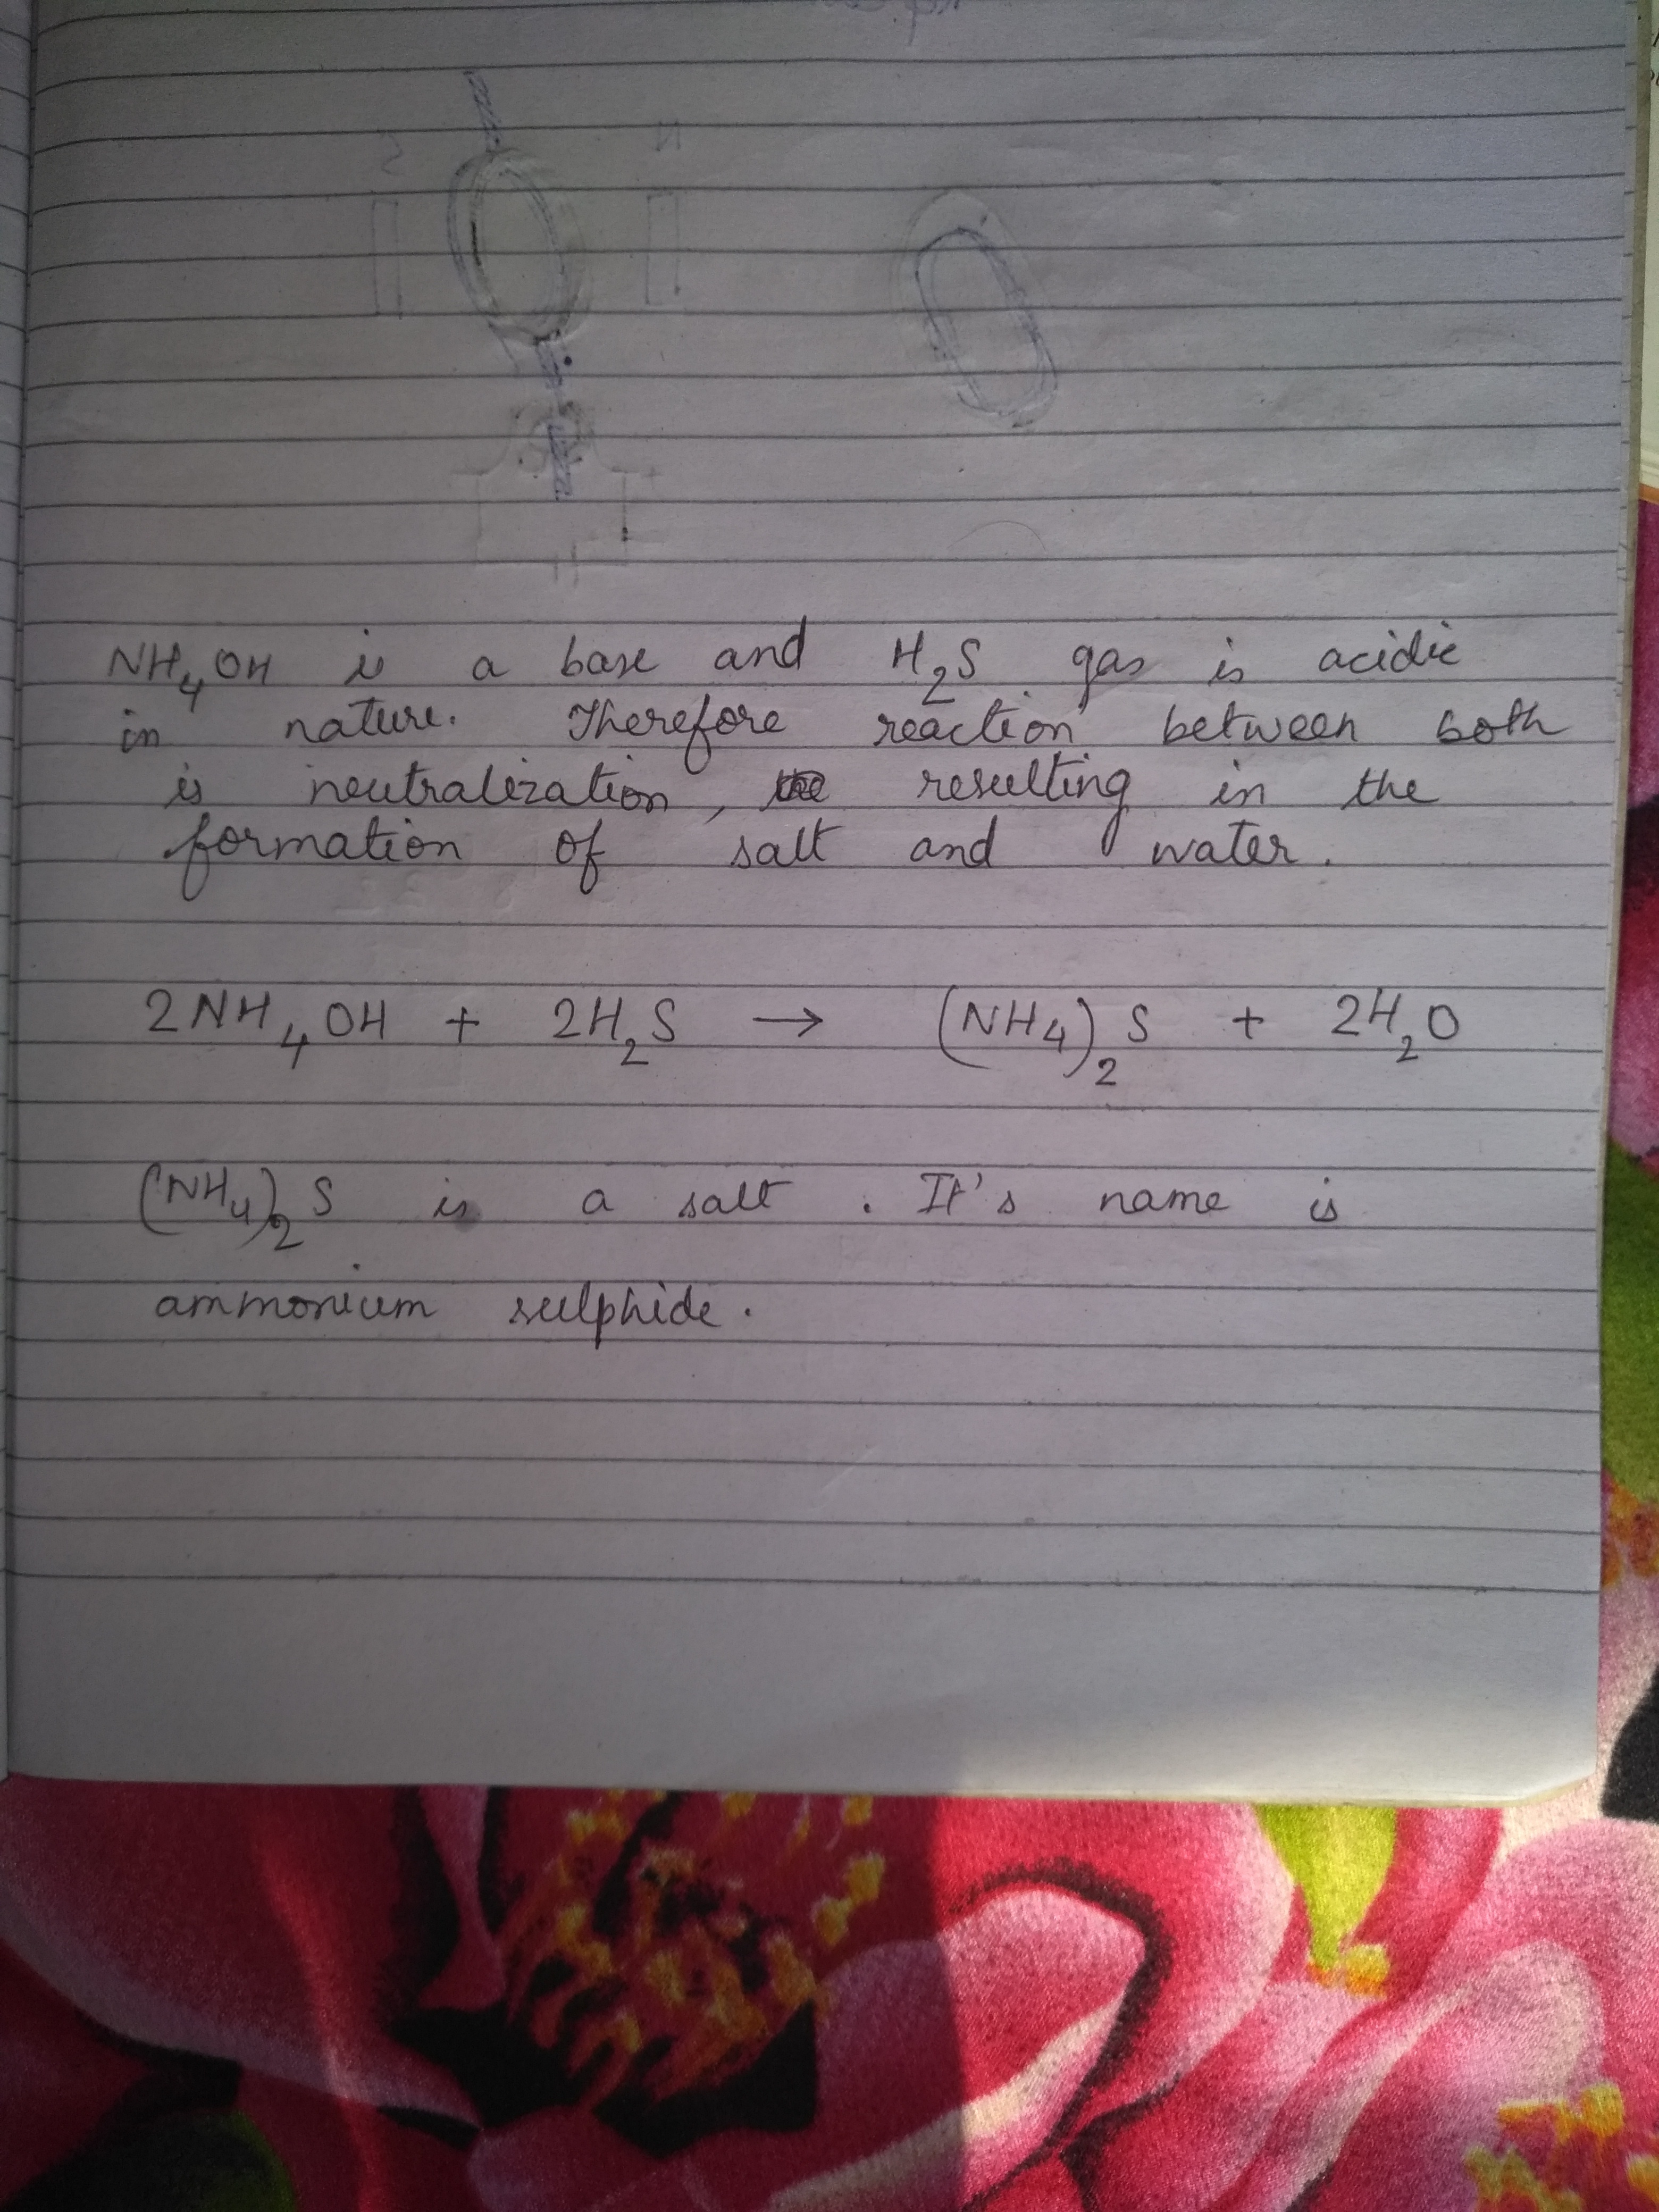 NH₄OH is a base and H₂S gas is acidic
in nature. Therefore reaction between both
is neutralization, resulting in the
formation of salt and water.
2NH₄OH + 2H₂S → (NH₄)₂S + 2H₂O
(NH₄)₂S is a salt. It's name is
ammonium sulphide.